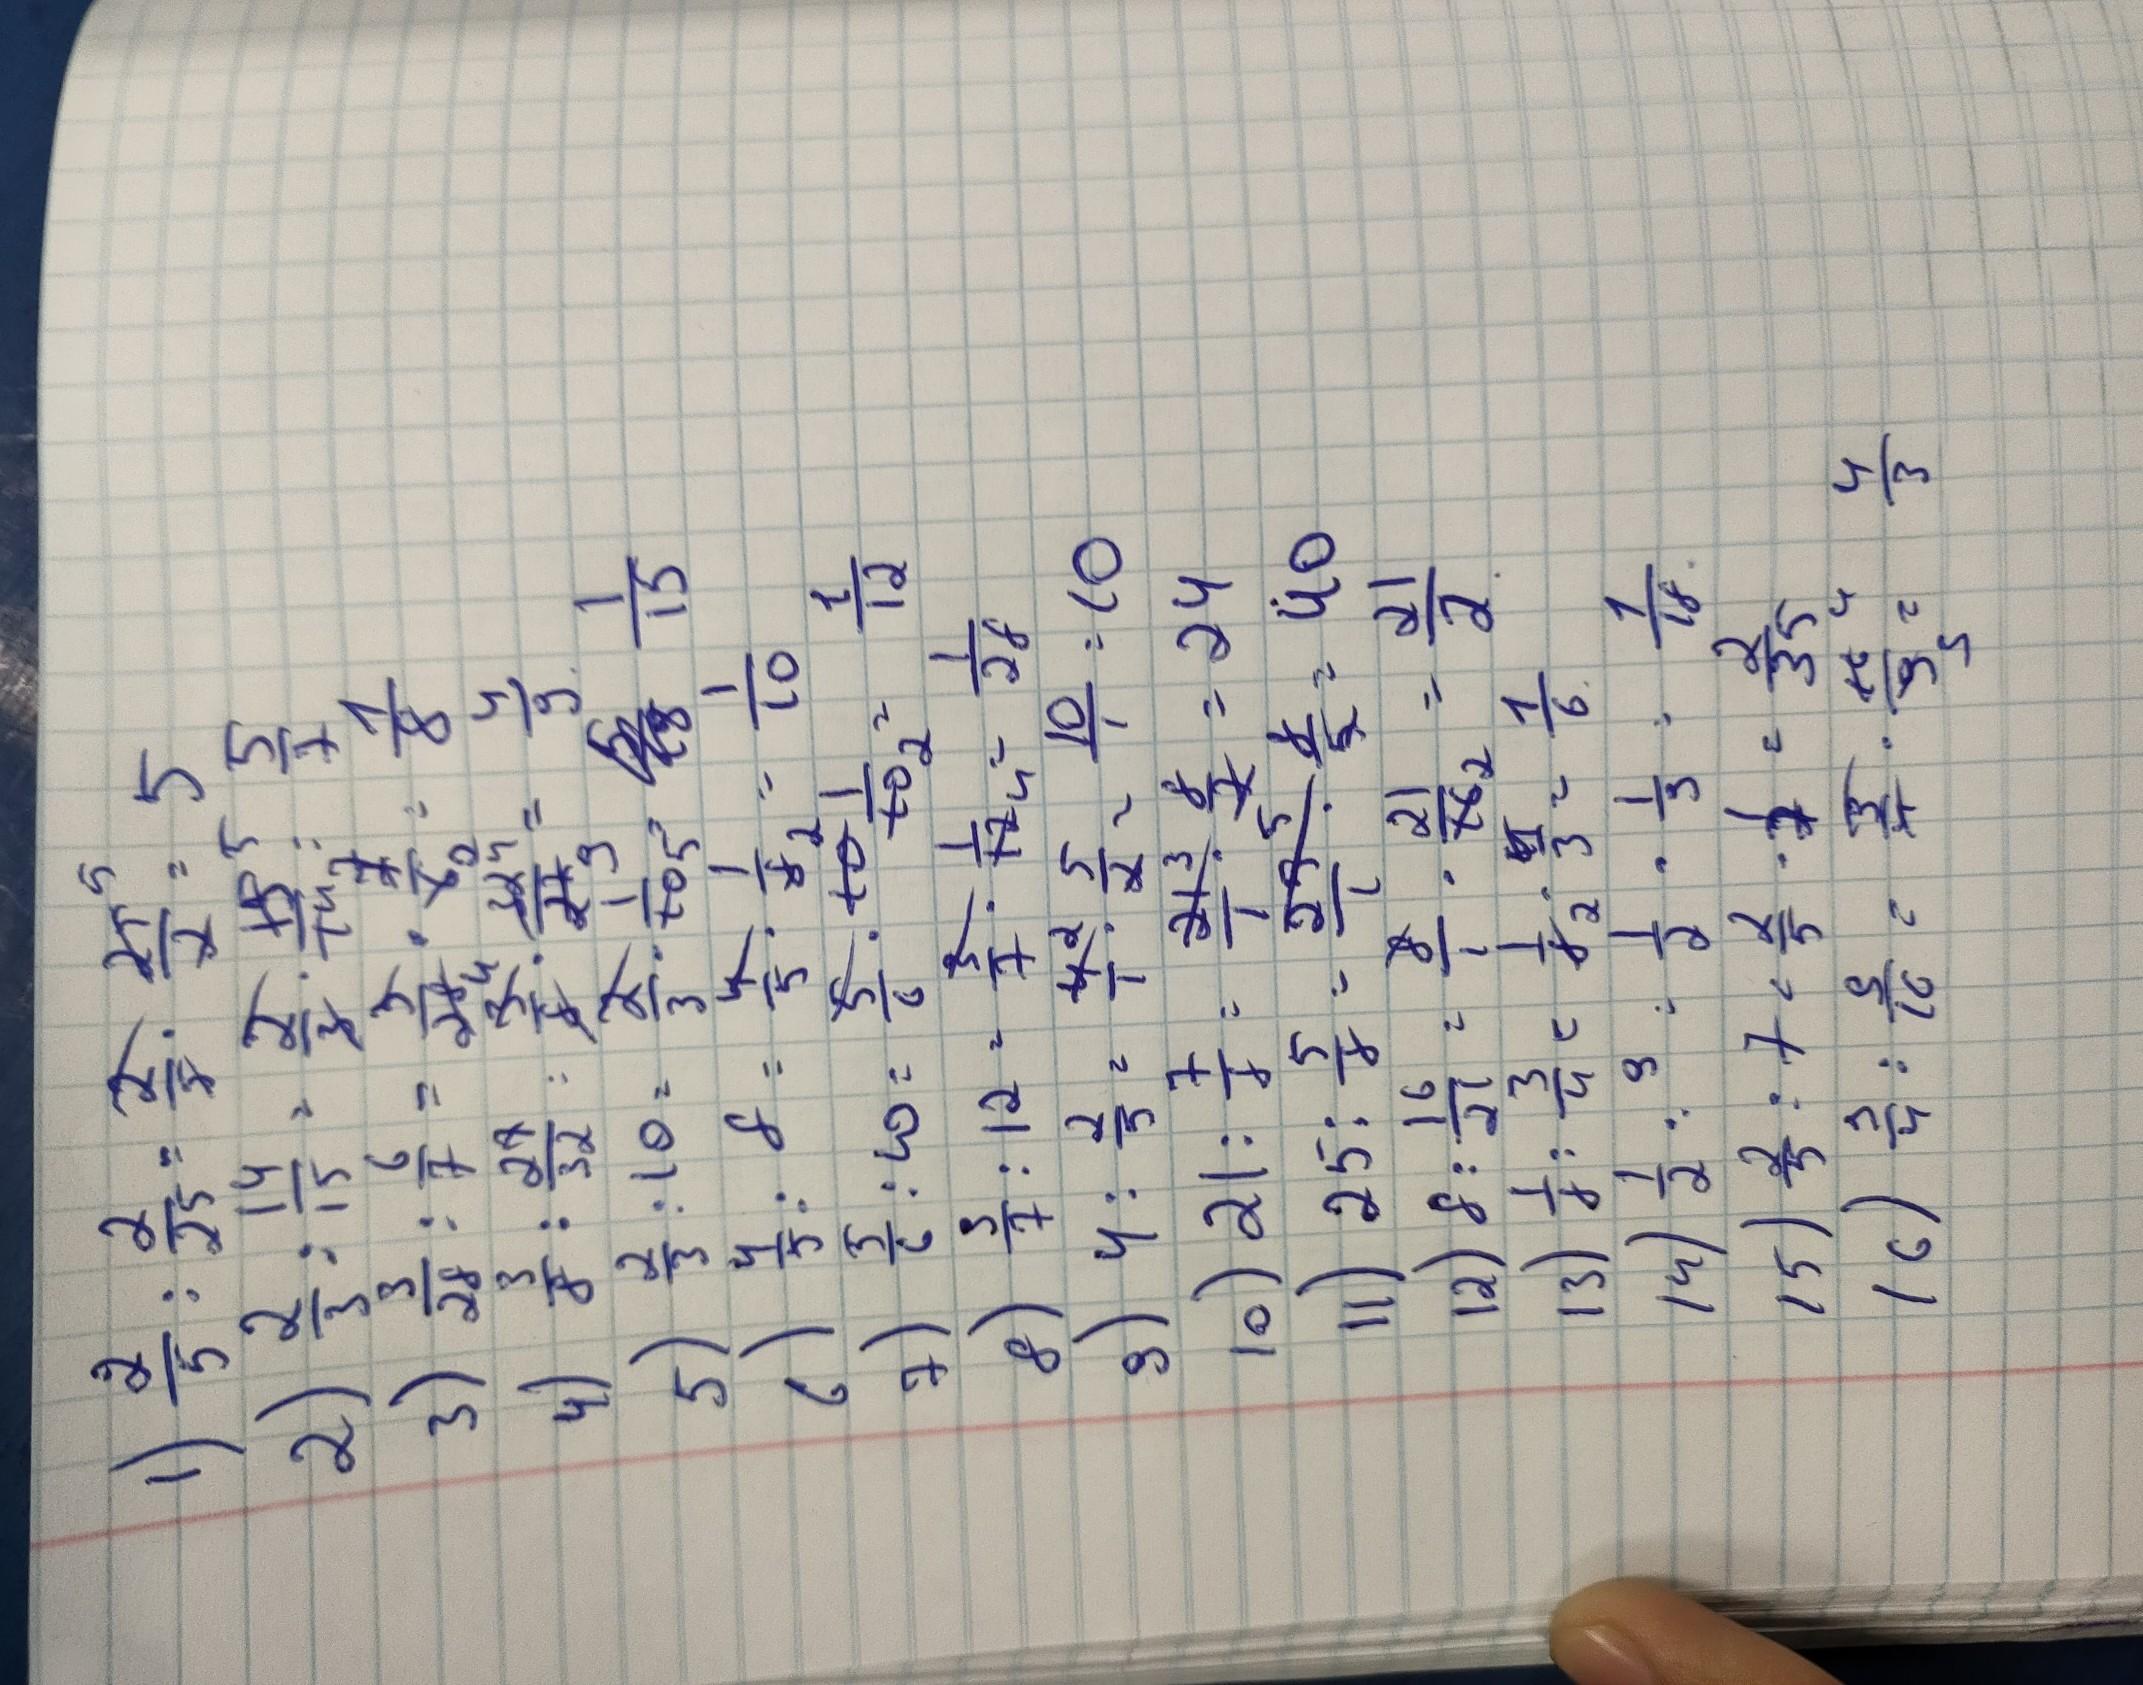 1) 2/5 : 2/25 = 2/5 · 25/2 = 5
2) 2/3 : 14/15 = 2/3 · 15/14 = 5/7
3) 3/28 : 6/7 = 3/28 · 7/6 = 1/8
4) 3/8 : 27/32 = 3/8 · 32/27 = 4/9
5) 2/3 : 10 = 2/3 · 1/10 = 1/15
6) 4/5 : 8 = 4/5 · 1/8 = 1/10
7) 5/6 : 10 = 5/6 · 1/10 = 1/12
8) 3/7 : 12 = 3/7 · 1/12 = 1/28
9) 4 : 2/5 = 4/1 · 5/2 = 10/1 = 10
10) 21 : 7/8 = 21/1 · 8/7 = 24
11) 25 : 5/8 = 25/1 · 8/5 = 40
12) 8 : 16/21 = 8/1 · 21/16 = 21/2
13) 1/8 : 3/4 = 1/8 · 4/3 = 1/6
14) 1/2 : 9 = 1/2 · 1/9 = 1/18
15) 2/5 : 7 = 2/5 · 1/7 = 2/35
16) 3/4 : 9/16 = 3/4 · 16/9 = 4/3